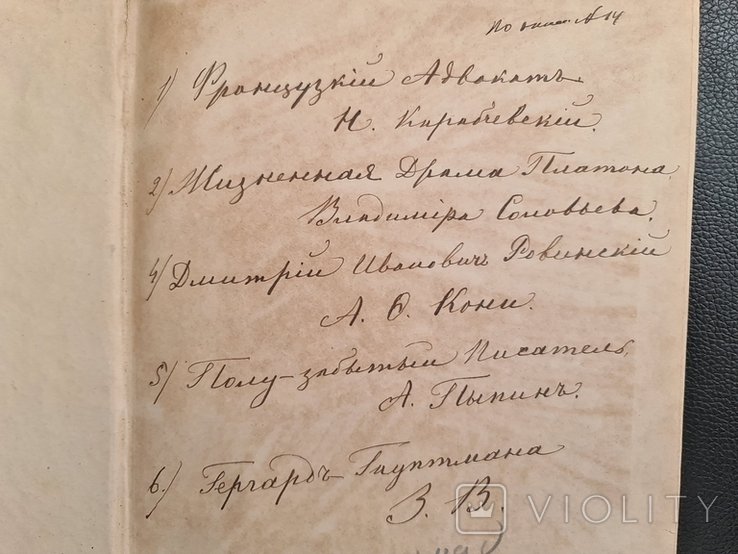 По опис. № 14
1) Французкій Адвокатъ
Н. Карабчевскій.
2) Жизненная Драма Платона
Владиміра Соловьева.
4) Дмитрій Ивановичъ Ровинскій
А. Ѳ. Кони.
5) Полу-забытый Писатель
А. Пыпинъ.
6.) Гергардъ Гауптмана
З. В.
VIOLITY